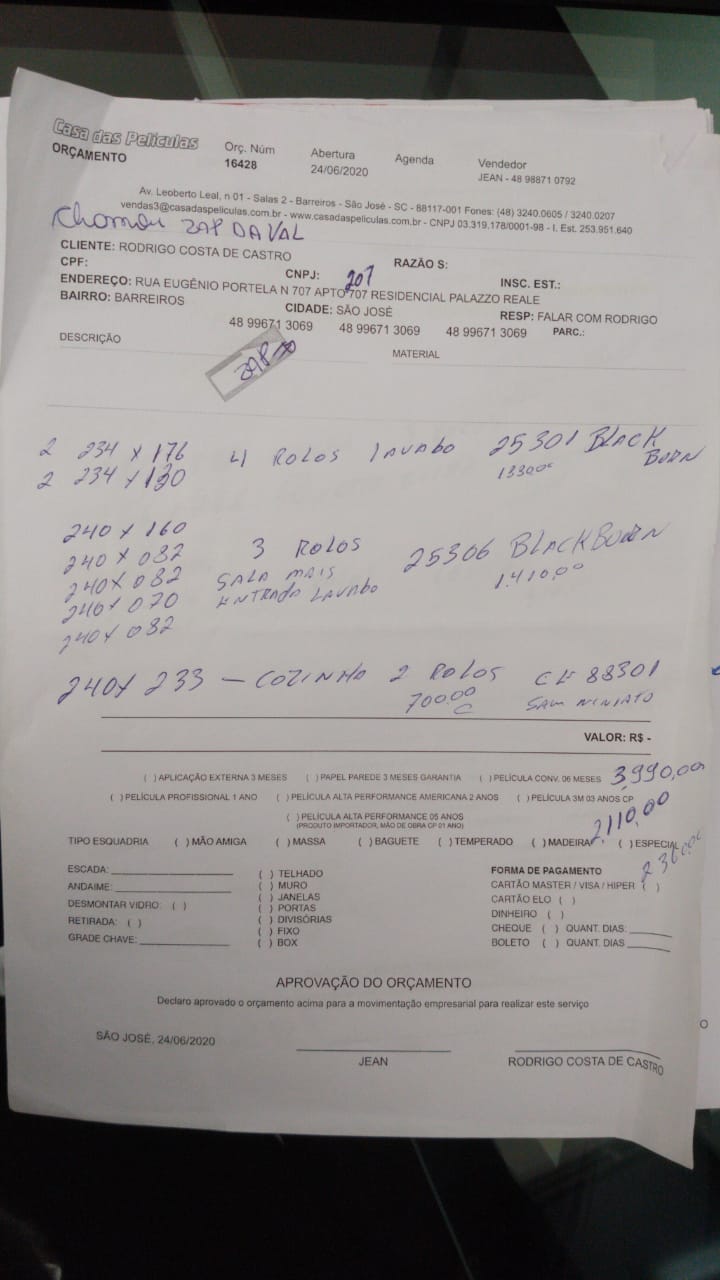 Casa das Películas
ORÇAMENTO
Orç. Núm
16428
Abertura
24/06/2020
Agenda
Vendedor
JEAN - 48 98871 0792
Av. Leoberto Leal, n 01 - Salas 2 - Barreiros - São José - SC - 88117-001 Fones: (48) 3240.0605 / 3240.0207
vendas3@casadaspeliculas.com.br - www.casadaspeliculas.com.br - CNPJ 03.319.178/0001-98 - I. Est. 253.951.640
ZAP DA VAL
CLIENTE: RODRIGO COSTA DE CASTRO
RAZÃO S:
CPF:
CNPJ:
INSC. EST.:
207
ENDEREÇO: RUA EUGÊNIO PORTELA N 707 APTO 707 RESIDENCIAL PALAZZO REALE
BAIRRO: BARREIROS
CIDADE: SÃO JOSÉ
RESP: FALAR COM RODRIGO
48 99671 3069 48 99671 3069 48 99671 3069 PARC.:
DESCRIÇÃO
MATERIAL
2 234 X 176 4 ROLOS LAVABO 25301 BLACK BORN
2 234 X 130 1330,00
240 X 160
240 X 082 3 ROLOS 25306 BLACKBORN
240 X 082 SALA MAIS 1.410,00
240 X 070 ENTRADA LAVABO
240 X 082
240 X 233 - COZINHA 2 ROLOS 88301
700,00
VALOR: R$ -
( ) APLICAÇÃO EXTERNA 3 MESES ( ) PAPEL PAREDE 3 MESES GARANTIA ( ) PELÍCULA CONV. 06 MESES 3,990,00
( ) PELÍCULA PROFISSIONAL 1 ANO ( ) PELÍCULA ALTA PERFORMANCE AMERICANA 2 ANOS ( ) PELÍCULA 3M 03 ANOS CP
( ) PELÍCULA ALTA PERFORMANCE 05 ANOS
2,110,00
(PRODUTO IMPORTADOR, MÃO DE OBRA CP 01 ANO)
TIPO ESQUADRIA ( ) MÃO AMIGA ( ) MASSA ( ) BAGUETE ( ) TEMPERADO ( ) MADEIRA ( ) ESPECIAL
ESCADA:
ANDAIME:
DESMONTAR VIDRO: ( )
RETIRADA: ( )
GRADE CHAVE:
( ) TELHADO
( ) MURO
( ) JANELAS
( ) PORTAS
( ) DIVISÓRIAS
( ) FIXO
( ) BOX
FORMA DE PAGAMENTO
CARTÃO MASTER / VISA / HIPER ( )
CARTÃO ELO ( )
DINHEIRO ( )
CHEQUE ( ) QUANT. DIAS:
BOLETO ( ) QUANT. DIAS
APROVAÇÃO DO ORÇAMENTO
Declaro aprovado o orçamento acima para a movimentação empresarial para realizar este serviço
SÃO JOSÉ, 24/06/2020
JEAN
RODRIGO COSTA DE CASTRO